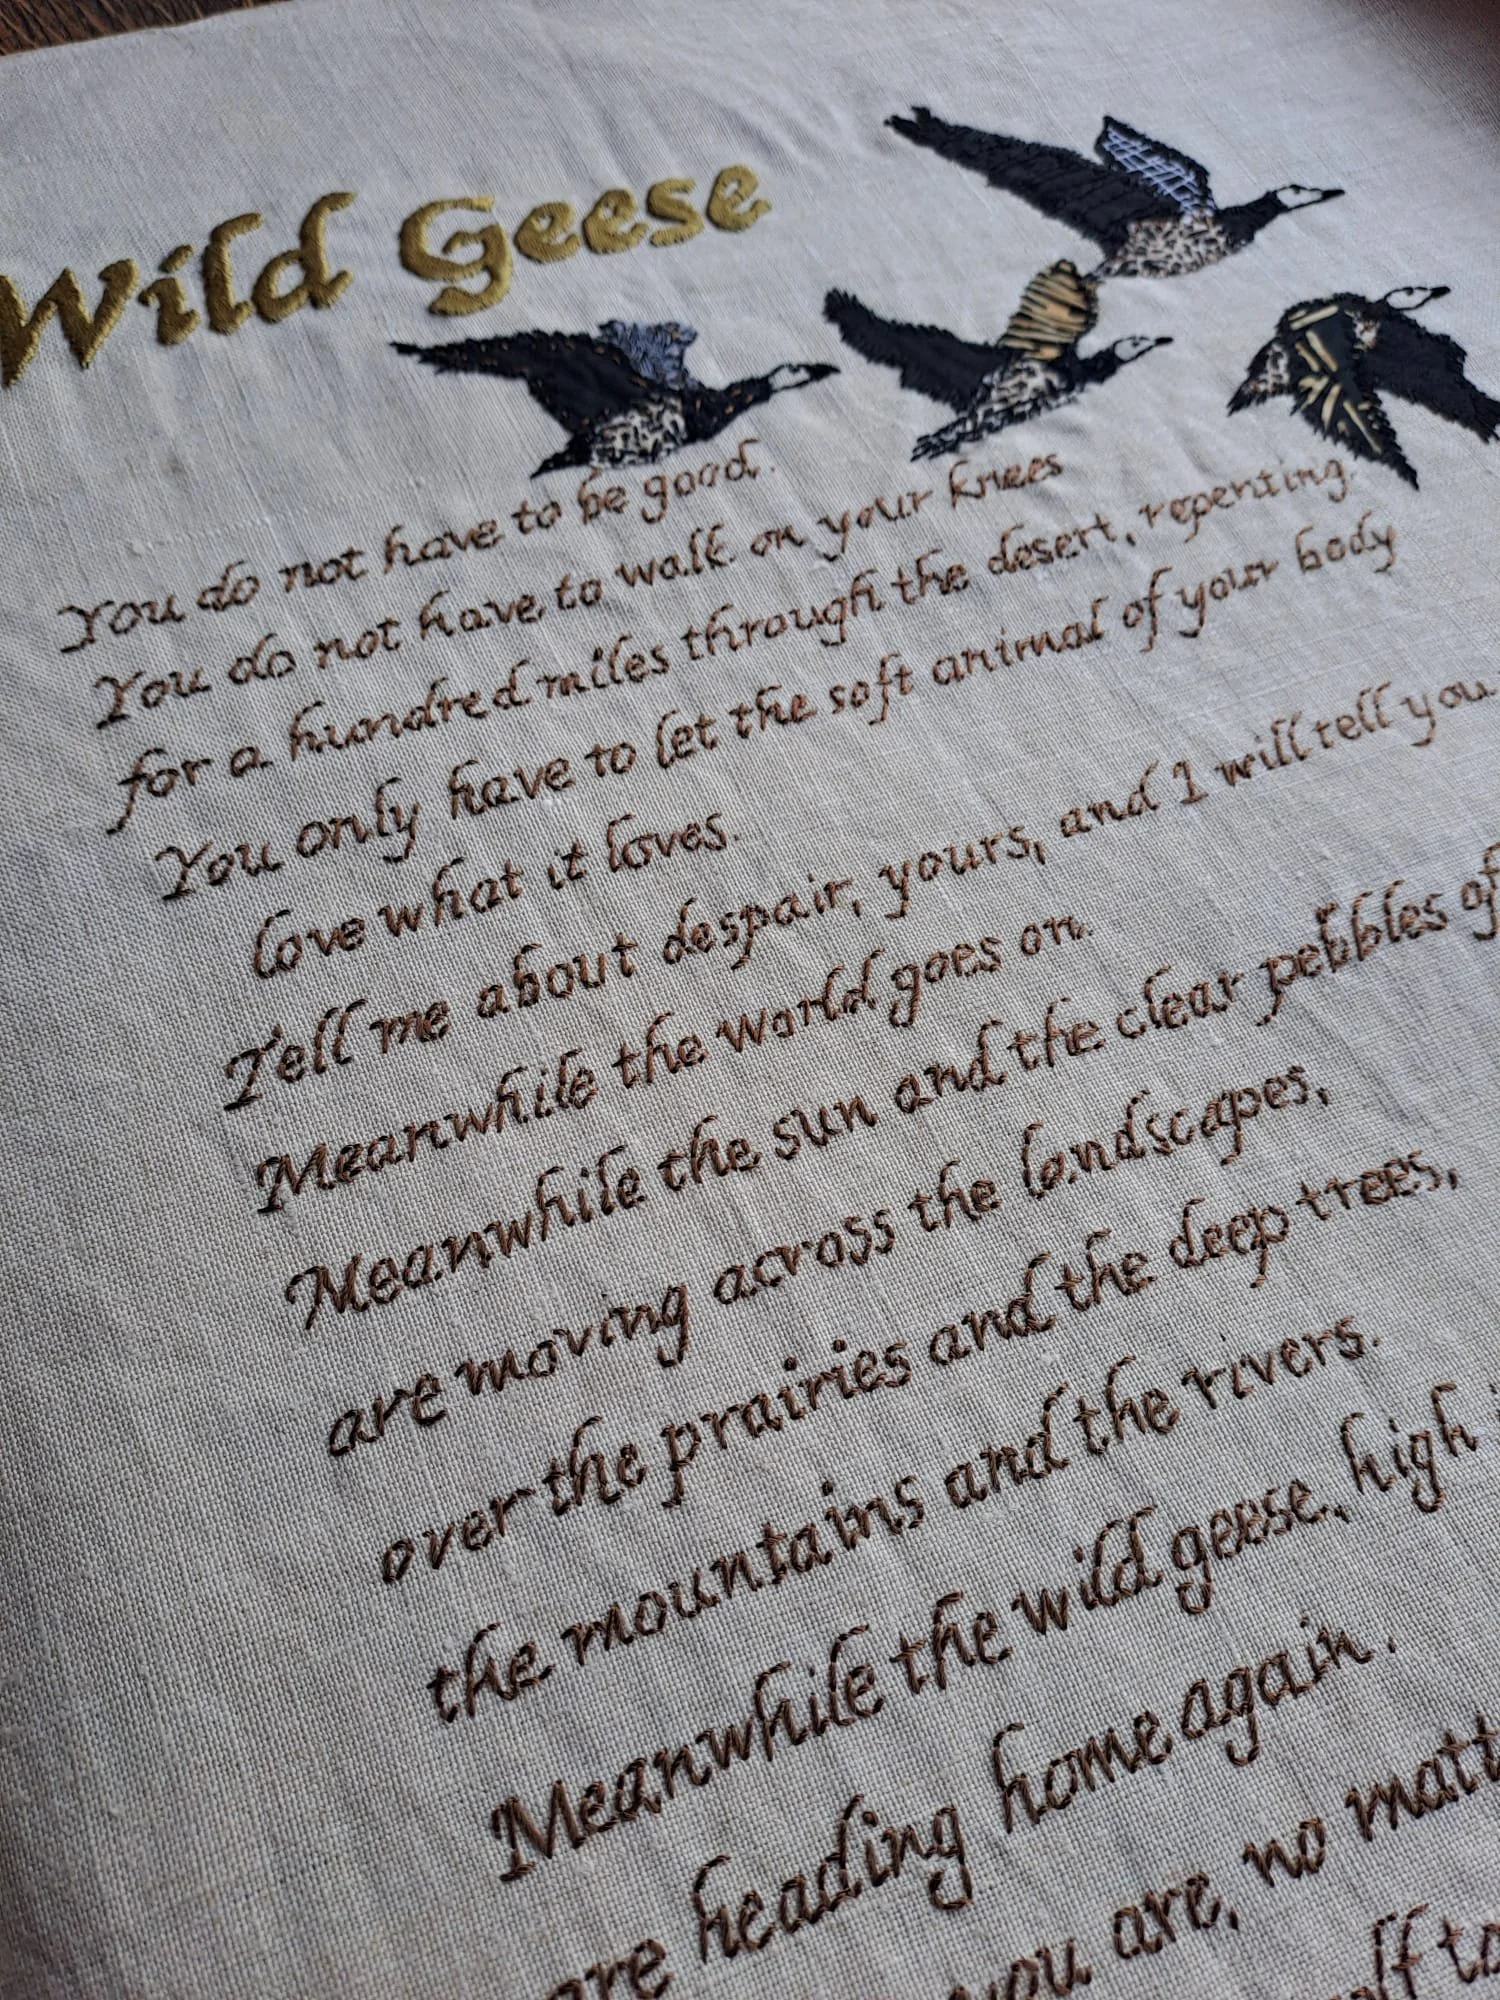 Wild Geese
You do not have to be good.
You do not have to walk on your knees
for a hundred miles through the desert, repenting.
You only have to let the soft animal of your body
love what it loves.
Tell me about despair, yours, and I will tell you
Meanwhile the world goes on.
Meanwhile the sun and the clear pebbles of
are moving across the landscapes,
over the prairies and the deep trees,
the mountains and the rivers.
Meanwhile the wild geese, high
are heading home again.
you are, no matt
to